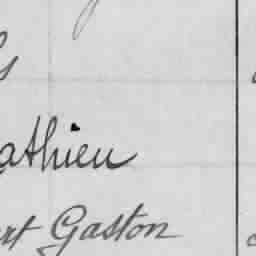 athieu
ert Gaston